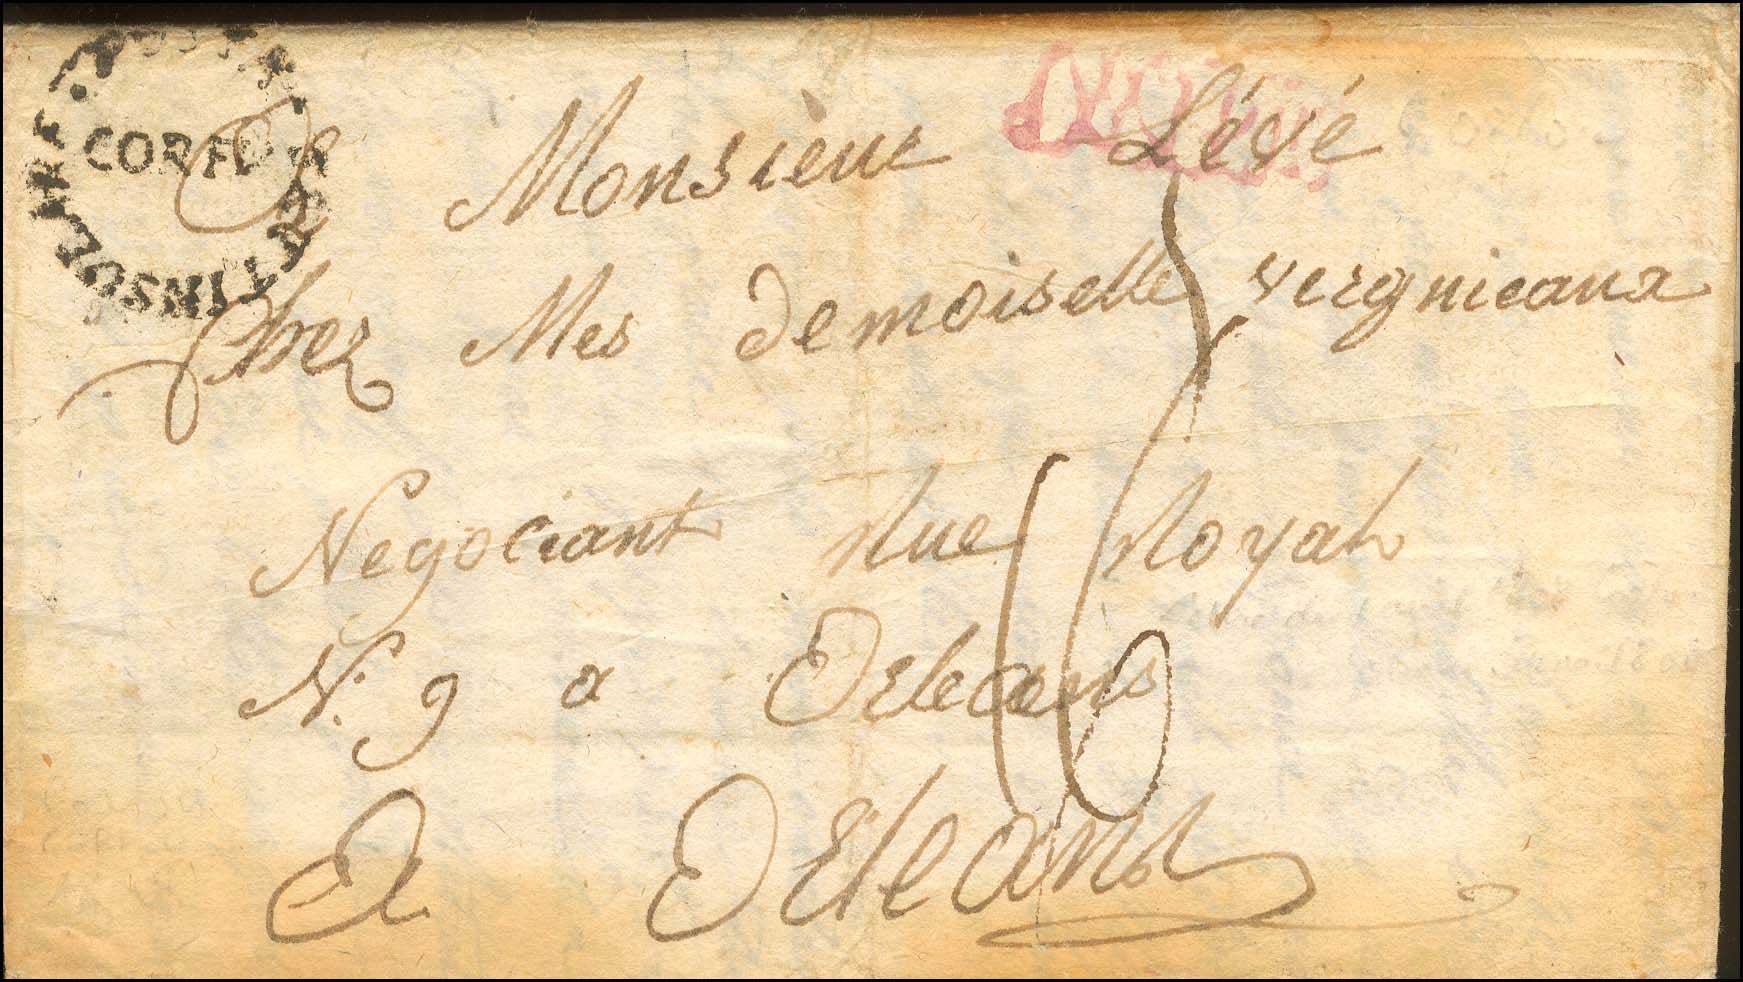 POSTA
CORFU
INSULARE
A Monsieur Lévé
Chez Mes demoiselle vergnieaux
Negociant Rue Royale
N: 9 a Orleans
A Orleans
16